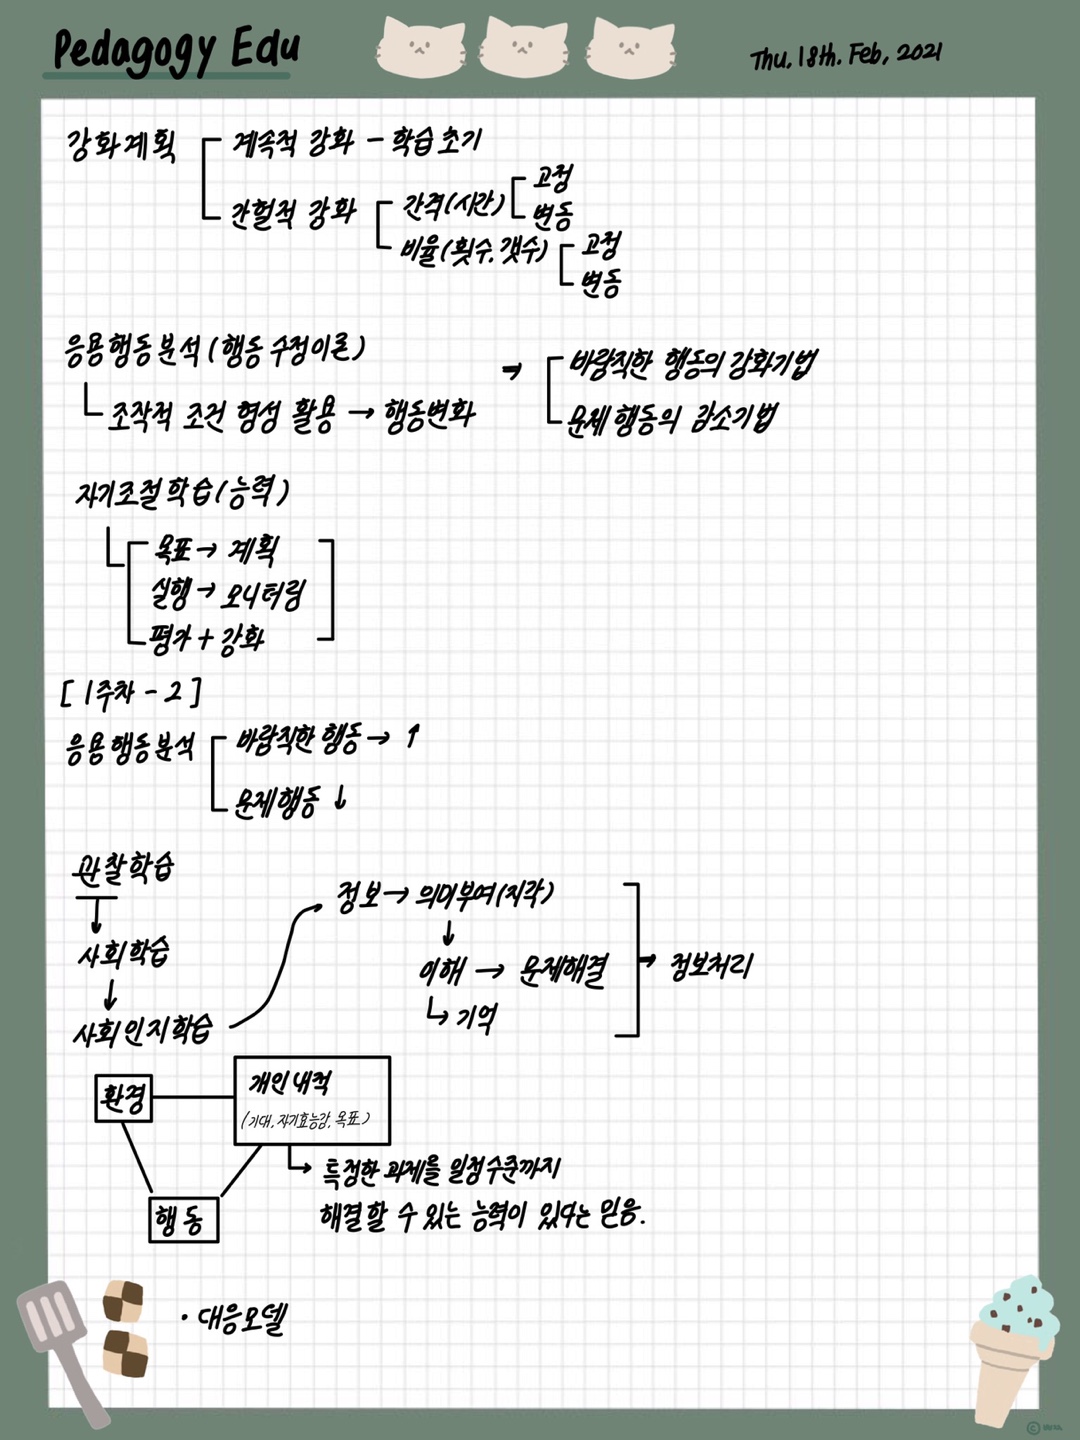 Pedagogy Edu
Thu, 18th. Feb, 2021
강화계획
계속적 강화 - 학습초기
간헐적 강화
간격(시간)
고정
변동
비율(횟수, 갯수)
고정
변동
응용행동분석(행동수정이론)
조작적 조건 형성 활용 → 행동변화
→
바람직한 행동의 강화기법
문제행동의 감소기법
자기조절학습(능력)
목표 → 계획
실행 → 모니터링
평가 + 강화
[1주차 - 2]
응용행동분석
바람직한 행동 → ↑
문제행동 ↓
관찰학습
↓
사회학습
↓
사회인지학습
정보 → 의미부여(지각)
↓
이해 → 문제해결
↳ 기억
→ 정보처리
환경
개인내적
(기대, 자기효능감, 목표)
행동
특정한 과제를 일정수준까지
해결할 수 있는 능력이 있다는 믿음.
· 대응모델